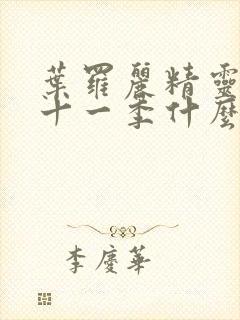 葉羅麗精靈
十一季什麼
李慶華